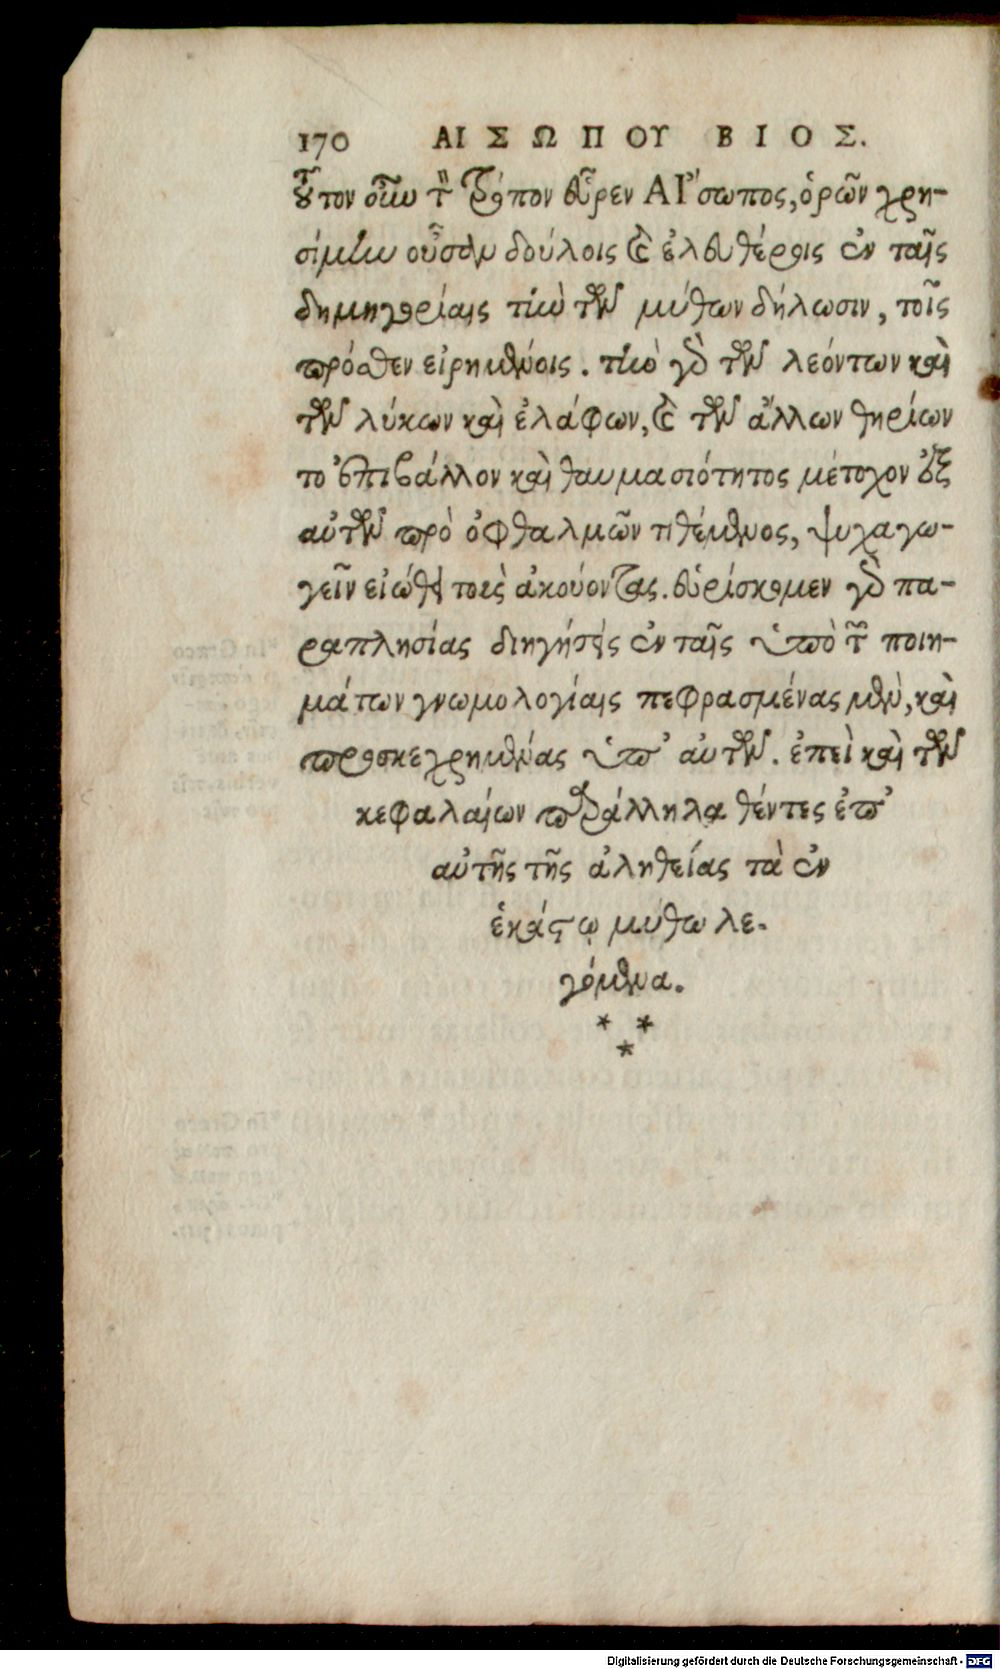 170 ΑΙΣΩΠΟΥ ΒΙΟΣ.
τοῦτον οὖν τὸν τρόπον εὗρεν ΑΙ῎σωπος, ὁρῶν χρη-
σίμην οὖσαν δούλοις καὶ ἐλευθέροις ἐν ταῖς
δημηγορίαις τὴν τῶν μύθων δήλωσιν, τοῖς
πρόσθεν εἰρημένοις. τὴν γὰρ τῶν λεόντων καὶ
τῶν λύκων καὶ ἐλάφων, καὶ τῶν ἄλλων θηρίων
το ἐπιβάλλον καὶ θαυμασιότητος μέτοχον ἐξ
αὐτῶν πρὸ ὀφθαλμῶν τιθέμενος, ψυχαγω-
γεῖν εἰώθει τοὺς ἀκούοντας. εὑρίσκομεν γὰρ πα-
ραπλησίας διηγήσεις ἐν ταῖς ὑπὸ τῶν ποιη-
μάτων γνωμολογίαις πεφρασμένας μὲν, καὶ
προσκεχρημένας ὑπ' αὐτῶν. ἐπεὶ καὶ τῶν
κεφαλαίων παράλληλα θέντες ἐπ'
αὐτῆς τῆς ἀληθείας τὰ ἐν
ἑκάστῳ μύθω λε-
γόμενα.
* *
*
Digitalisierung gefördert durch die Deutsche Forschungsgemeinschaft - DFG